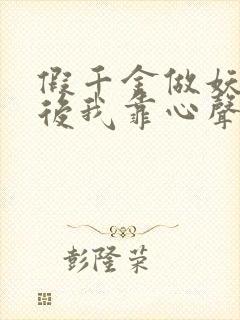 假千金做妖
後我靠心聲
彭隆荣